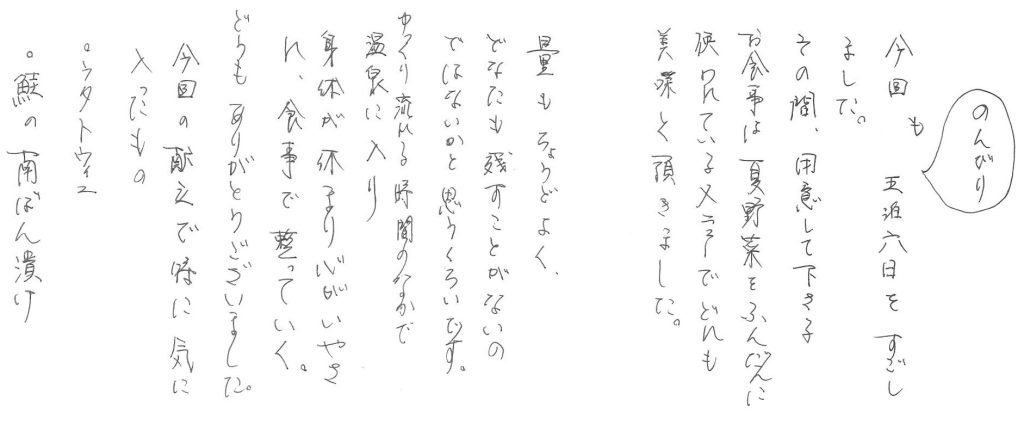 のんびり
今回も 五泊六日をすごし
ました。
その間、用意して下さる
お食事は夏野菜をふんだんに
使われているメニューでどれも
美味しく頂きました。
量もちょうどよく、
どなたも残すことがないの
ではないかと思うくらいです。
ゆっくり流れる時間のなかで
温泉に入り
身体が休まり心がいやさ
れ、食事で整っていく。
どうもありがとうございました。
今回の献立で特に気に
入ったもの
。ラタトゥイユ
。鮭の南ばん漬け